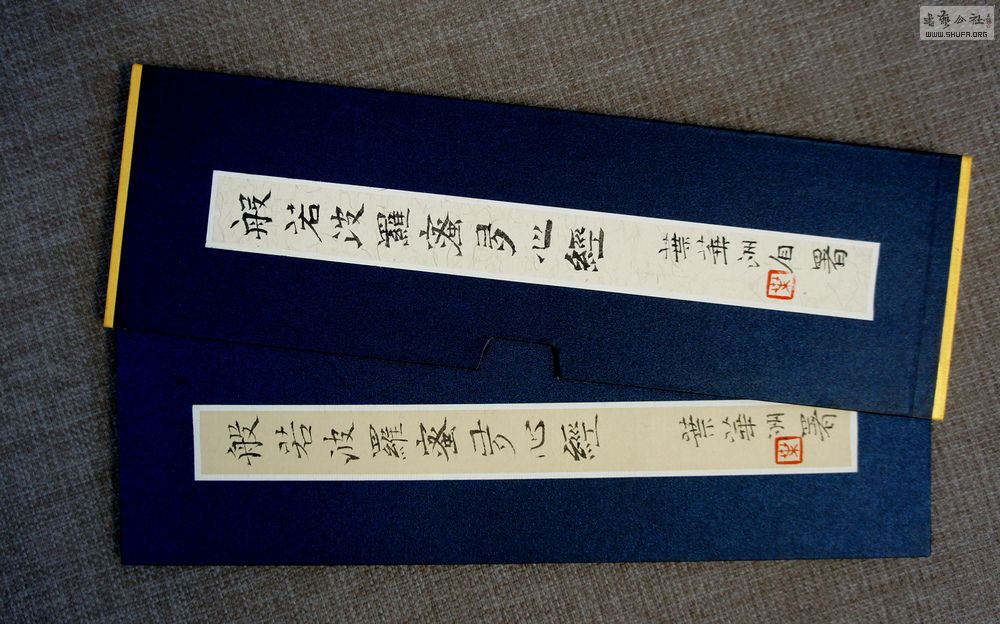 般若波羅蜜多心經
葉華洲自署
葉
般若波羅蜜多心經
葉華洲署
葉
書藝公社
WWW.SHUFA.ORG